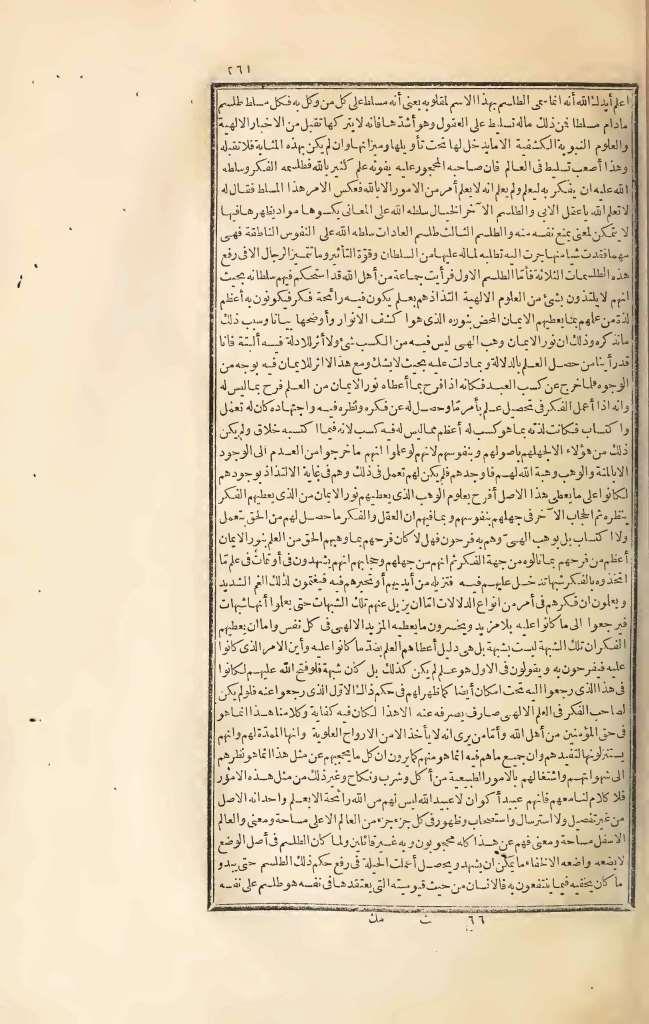 ٢٦١
اعلم أيدك الله أنه انما سمى الطلسم بهذا الاسم لمقلوبه يعنى أنه مسلط على كل من وكل به فكل مسلط طلسم
مادام مسلطا فمن ذلك ماله تسليط على العقول وهو أشدها فانه لا يتركها تقبل من الاخبار الالهية
والعلوم النبوية الكشفية الا ما يدخل لها تحت تأويلها وميزانها وان لم يكن بهذه المثابة فلا تقبله
وهذا أصعب تسليط فى العالم فان صاحبه المحجور عليه يفوته علم كثير بالله فطلسمه الفكر وسلطه
الله عليه ان يفكر به ليعلم ولم يعلم انه لا يعلم أمر من الامور الا بالله فعكس الامر هذا المسلط فقال له
لا تعلم الله يا عقل الا بى والطلسم الآخر الخيال سلطه الله على المعانى يكسوها مواد يظهرها فيها
لا يتمكن لمعنى يمنع نفسه منه والطلسم الثالث طلسم العادات سلطه الله على النفوس الناطقة فهى
مهما فقدت شيأ منها جرت اليه تطلبه لما له عليها من السلطان وقوّة التأثير وما تتميز الرجال الا فى رفع
هذه الطلسمات الثلاثة فأمّا الطلسم الاول فرأيت جماعة من أهل الله قد استحكم فيهم سلطانه بحيث
انهم لا يلتذون بشئ من العلوم الالهية التذاذهم بعلم يكون فيه رائحة فكر فيكونون به أعظم
لذة من علمهم بما يعطيهم الايمان المحض بنوره الذى هو اكشف الانوار وأوضحها بيانا وسبب ذلك
ما نذكره وذلك ان نور الايمان وهب الهى ليس فيه من الكسب شئ ولا أثر للادلة فيه ألبتة فانا
قد رأينا من حصل العلم بالدلالة وبما دلت عليه بحيث لا يشك ومع هذا لا اثر للايمان فيه بوجه من
الوجوه فلما خرج عن كسب العبد فكانه اذا فرح بما أعطاه نور الايمان من العلم فرح بما ليس له
وانه اذا أعمل الفكر فى تحصيل علم بأمر مّا وحصل له عن فكره ونظره فيه واجتهاده كان له تعمل
واكتساب فكانت لذته بما هو كسب له أعظم مما ليس له فيه كسب لانه فيما اكتسبه خلاق ولم يكن
ذلك من هؤلاء الا لجهلهم باصولهم وبنفوسهم لانهم لو علموا انهم ما خرجوا من العدم الى الوجود
الا بالمنة والوهب وهبة الله لهم فاوجدهم فلم يكن لهم تعمل فى ذلك وهم فى غاية الالتذاذ بوجودهم
لكانوا على ما يعطى هذا الاصل أفرح بعلوم الوهب الذى يعطيهم نور الايمان من الذى يعطيهم الفكر
بنظره ثم الحجاب الآخر فى جهلهم بنفوسهم وبما فيهم ان العقل والفكر ما حصل لهم من الحق بتعمل
ولا اكتساب بل بوهب الهىّ وهم به فرحون فهلا كان فرحهم بما وهبهم الحق من العلم بنور الايمان
أعظم من فرحهم بما نالوه من جهة الفكر ثم انهم من جهلهم وحجابهم انهم يشهدون فى أوقات فى علم مّا
اتخذوه بالفكر شبها تدخل عليهم فيه فتزيله من أيديهم أو تحيرهم فيه فيغتمون لذلك الغم الشديد
ويعملون ان فكرهم فى أمر من أنواع الدلالات امّا ان يزيل عنهم تلك الشبهات حتى يعلموا أنها شبهات
فيرجعوا الى ما كانوا عليه بلا مزيد ويخسرون ما يعطيه المزيد الالهى فى كل نفس واما ان يعطيهم
الفكر ان تلك الشبهة ليست بشبهة بل هى دليل أعطاهم العلم بضدّ ما كانوا عليه وأين الامر الذى كانوا
عليه فيفرحون به ويقولون فى الاول هو علم لم يكن كذلك بل كان شبهة فلو فتح الله عليهم لكانوا
فى هذا الذى رجعوا اليه تحت امكان أيضا كما ظهر لهم فى حكم ذلك الاوّل الذى رجعوا عنه فلو لم يكن
لصاحب الفكر فى العلم الالهى صارف يصرفه عنه الا هذا لكان فيه كفاية وكلامنا هذا انما هو
فى حق المؤمنين من أهل الله وأمّا من يرى انه لا يأخذ الا من الارواح العلوية وانها الممدّة لهم وانهم
يستنزلونها لتفيدهم وان جميع ما هم فيه انما هو منهم كما يرون ان كل ما يحجبهم عن مثل هذا انما هو نظرهم
الى شهواتهم واشتغالهم بالامور الطبيعية من أكل وشرب ونكاح وغير ذلك من مثل هذه الامور
فلا كلام لنا معهم فانهم عبيد أكوان لا عبيد الله ليس لهم من الله رائحة الا بعلم واحد انه الاصل
من غير تفصيل ولا استرسال واستصحاب وظهور فى كل جزء جزء من العالم الاعلى مساحة ومعنى والعالم
الاسفل مساحة ومعنى فهم عن هذا كله محجوبون وبه غير قائلين ولما كان الطلسم فى أصل الوضع
لا يضعه واضعه الا لخفاء ما يمكن ان يشهد ويحصل أعملت الحيلة فى رفع حكم ذلك الطلسم حتى يبدو
ما كان يخفيه فيما ينتفعون به فالانسان من حيث قيوميته التى يعتقدها فى نفسه هو طلسم على نفسه
٦٦ ث مك